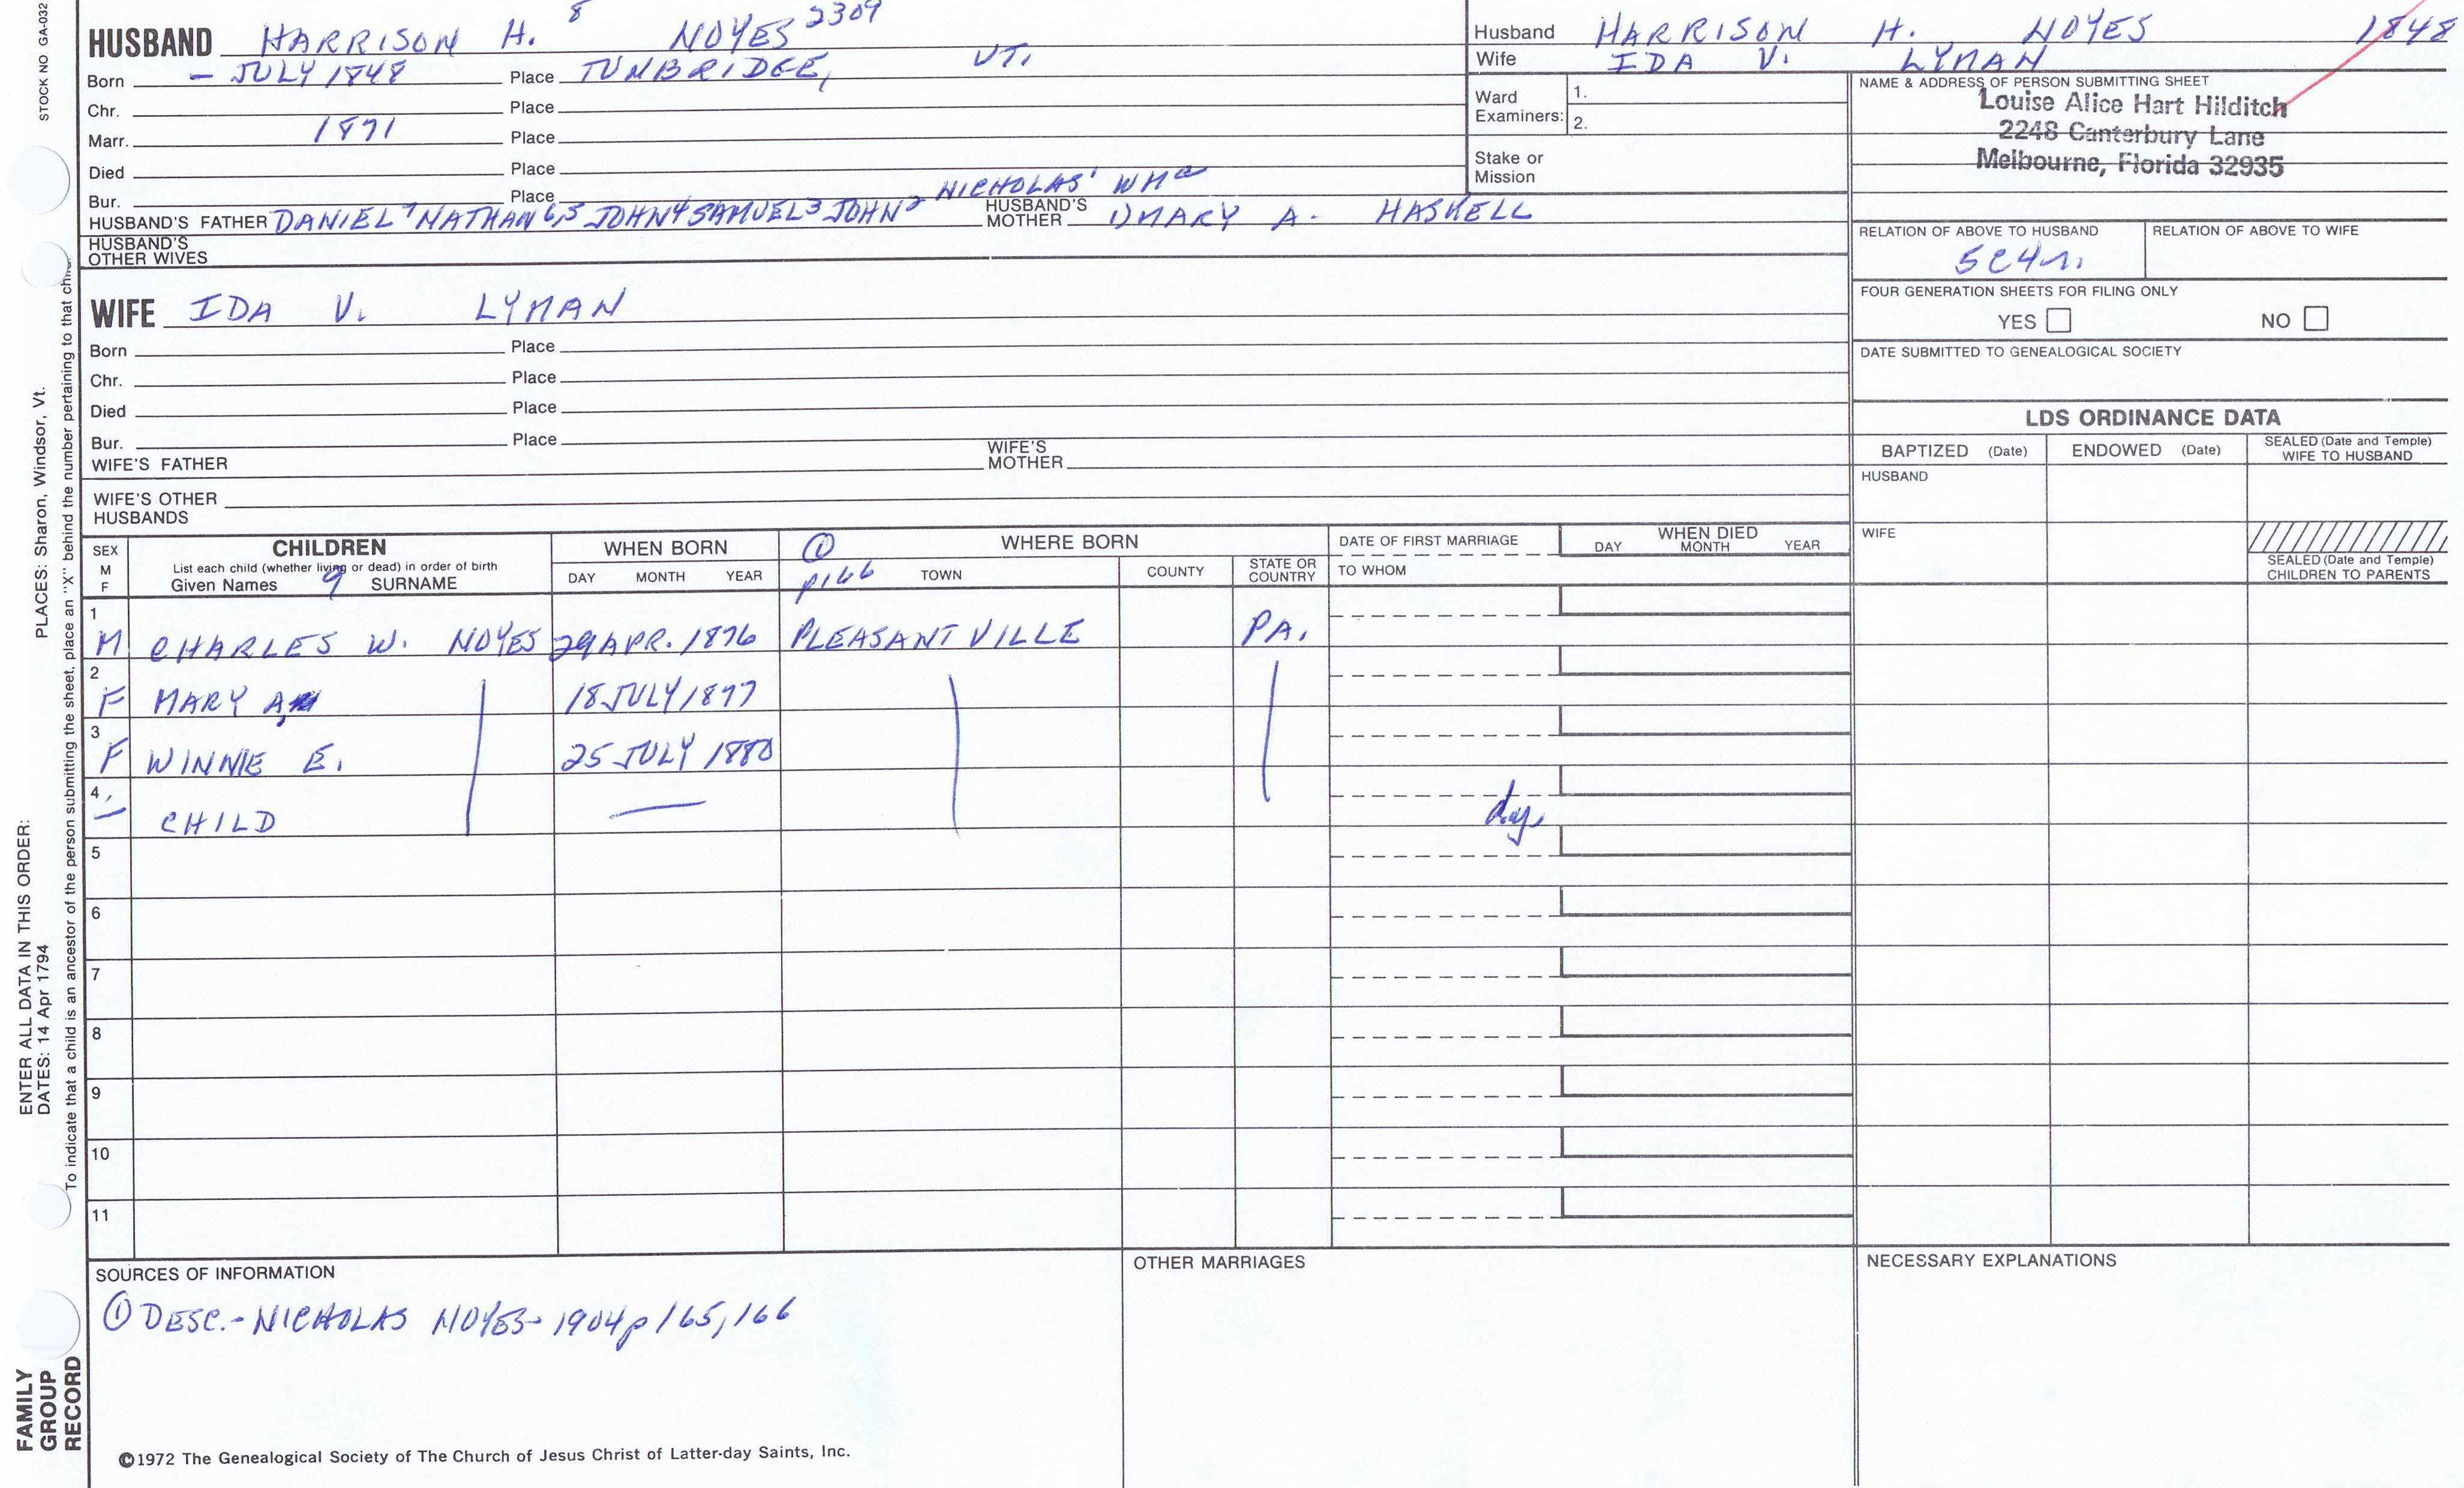 STOCK NO GA-032
HUSBAND HARRISON H. 8 NOYES 2309
Born - JULY 1848 Place TUNBRIDGE, VT.
Chr. Place
Marr. 1871 Place
Died Place
Bur. Place
HUSBAND'S FATHER DANIEL7 NATHAN6,5 JOHN4 SAMUEL3 JOHN2 NICHOLAS1 WMa HUSBAND'S MOTHER 1) MARY A. HASKELL
HUSBAND'S OTHER WIVES
WIFE IDA V. LYMAN
Born Place
Chr. Place
Died Place
Bur. Place
WIFE'S FATHER WIFE'S MOTHER
WIFE'S OTHER HUSBANDS
Husband HARRISON H. NOYES 1848
Wife IDA V. LYMAN
Ward Examiners: 1.
2.
Stake or Mission
NAME & ADDRESS OF PERSON SUBMITTING SHEET
Louise Alice Hart Hilditch
2248 Canterbury Lane
Melbourne, Florida 32935
RELATION OF ABOVE TO HUSBAND RELATION OF ABOVE TO WIFE
5C4r.
FOUR GENERATION SHEETS FOR FILING ONLY
YES NO
DATE SUBMITTED TO GENEALOGICAL SOCIETY
LDS ORDINANCE DATA
BAPTIZED (Date) ENDOWED (Date) SEALED (Date and Temple) WIFE TO HUSBAND
HUSBAND
WIFE
SEALED (Date and Temple) CHILDREN TO PARENTS
SEX M F CHILDREN WHEN BORN ① WHERE BORN DATE OF FIRST MARRIAGE WHEN DIED
List each child (whether living or dead) in order of birth
Given Names 9 SURNAME DAY MONTH YEAR p166 TOWN COUNTY STATE OR COUNTRY TO WHOM DAY MONTH YEAR
1 M CHARLES W. NOYES 29 APR. 1876 PLEASANTVILLE PA.
2 F MARY A. 18 JULY 1877
3 F WINNIE E. 25 JULY 1880
4 - CHILD — dy.
5
6
7
8
9
10
11
SOURCES OF INFORMATION
① DESC.- NICHOLAS NOYES- 1904 p 165, 166
OTHER MARRIAGES
NECESSARY EXPLANATIONS
©1972 The Genealogical Society of The Church of Jesus Christ of Latter-day Saints, Inc.
FAMILY
GROUP
RECORD
ENTER ALL DATA IN THIS ORDER:
DATES: 14 Apr 1794 PLACES: Sharon, Windsor, Vt.
To indicate that a child is an ancestor of the person submitting the sheet, place an "X" behind the number pertaining to that child.